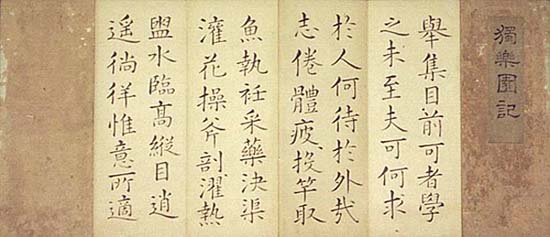 獨樂園記
舉集目前可者學
之未至夫可何求
於人何待於外哉
志倦體疲投竿取
魚執衽采藥決渠
灌花操斧剖濯熱
盥水臨高縱目逍
遙徜徉惟意所適